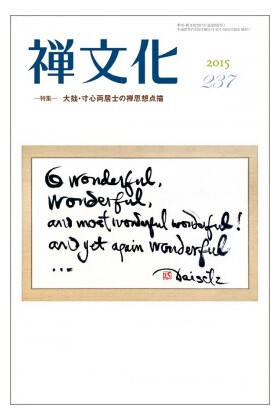 禅文化
―特集― 大拙・寸心両居士の禅思想点描
2015
237
O wonderful,
wonderful,
and most wonderful wonderful!
and yet again wonderful
...
Daisetz